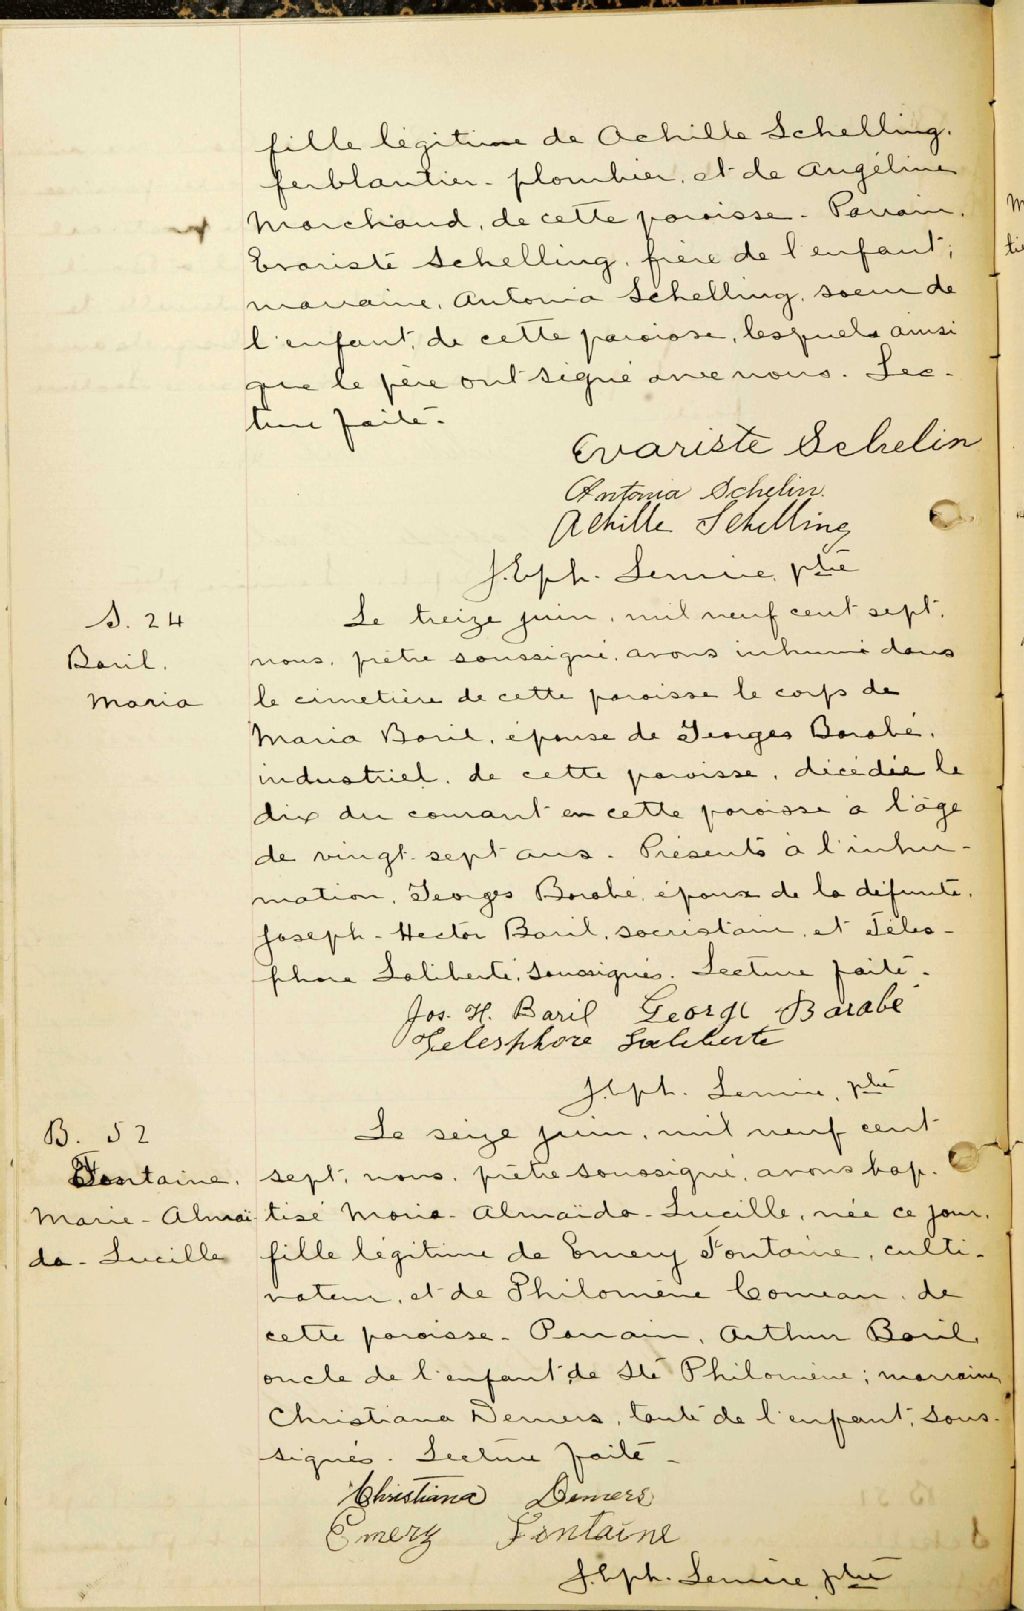 fille légitime de Achille Schelling,
ferblantier-plombier, et de Angélina
Marchand, de cette paroisse. Parrain,
Evariste Schelling, frère de l'enfant;
marraine, Antonia Schelling, soeur de
l'enfant, de cette paroisse, lesquels ainsi
que le père ont signé avec nous. Lec-
ture faite.
Evariste Schelin
Antonia Schelin.
Achille Schelling
J. Eph. Lemire, ptre
S. 24
Baril,
Maria
Le treize juin, mil neuf cent sept,
nous, prêtre soussigné, avons inhumé dans
le cimetière de cette paroisse le corps de
Maria Baril, épouse de Georges Barabé,
industriel, de cette paroisse, décédée le
dix du courant en cette paroisse à l'âge
de vingt-sept ans. Présents à l'inhu-
mation, Georges Barabé, époux de la défunte,
Joseph-Hector Baril, sacristain, et Téles-
phore Laliberté, soussignés. Lecture faite.
Jos. H. Baril George Barabé
Telesphore Laliberte
J. Eph. Lemire, ptre
B. 52
Fontaine,
Marie-Almaï
da-Lucille
Le seize juin, mil neuf cent
sept, nous, prêtre soussigné, avons bap-
tisé Marie-Almaïda-Lucille, née ce jour,
fille légitime de Emery Fontaine, culti-
vateur, et de Philomène Comeau, de
cette paroisse. Parrain, Arthur Baril,
oncle de l'enfant, de Ste Philomène; marraine,
Christiana Demers, tante de l'enfant, sous-
signés. Lecture faite.
Christiana Demers
Emery Fontaine
J. Eph. Lemire, ptre